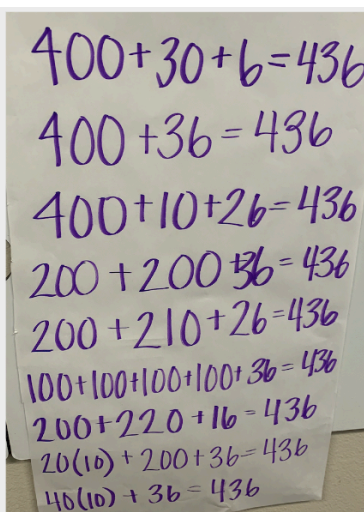 400+30+6=436
400+36=436
400+10+26=436
200+200+36=436
200+210+26=436
100+100+100+100+36=436
200+220+16=436
20(10)+200+36=436
40(10)+36=436